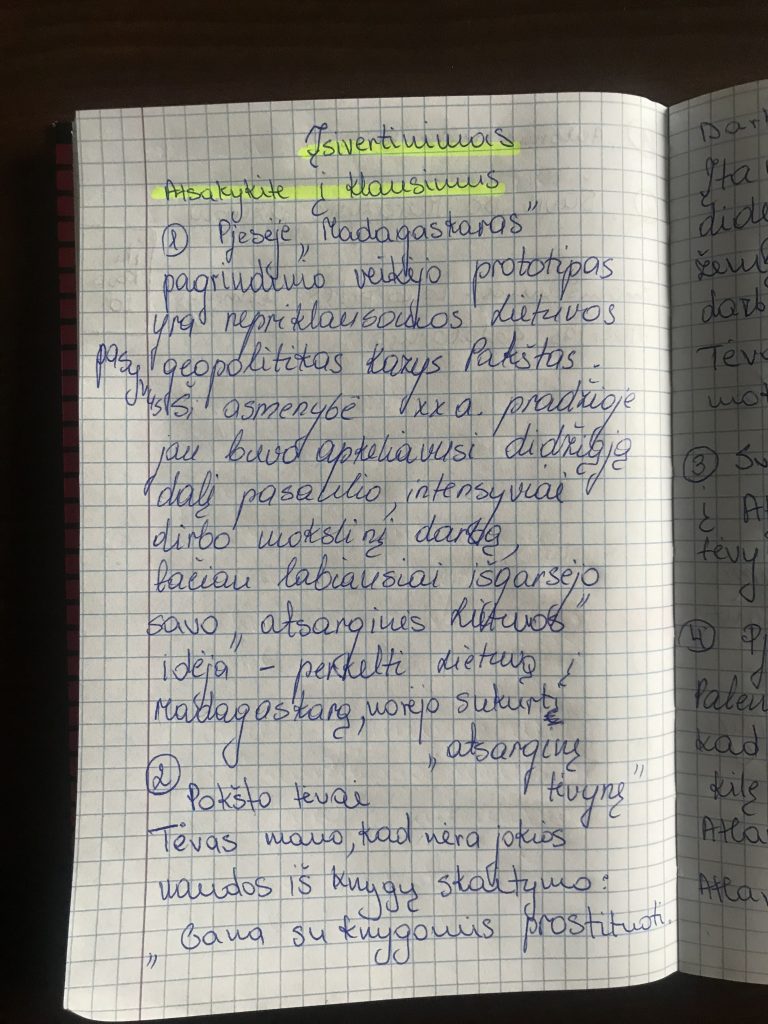 Įsivertinimas
Atsakykite į klausimus
① Pjesėje „Madagaskaras"
pagrindinio veikėjo prototipas
yra nepriklausomos Lietuvos
geopolitikas Kazys Pakštas.
Ši asmenybė XX a. pradžioje
jau buvo apkeliavusi didžiąją
dalį pasaulio, intensyviai
dirbo mokslinį darbą,
tačiau labiausiai išgarsėjo
savo „atsarginės Lietuvos"
idėja – perkelti Lietuvą į
Madagaskarą, norėjo sukurti
„atsarginę
tėvynę"
② Pokšto tėvai
Tėvas mano, kad nėra jokios
naudos iš knygų skaitymo:
„Gana su knygomis prostituoti.
Dar
Įta
dide
žem
darb
Tėva
mot
③ Su
į At
tėvy
④ Pj
Palen
kad
kilę
Atla
Atlan